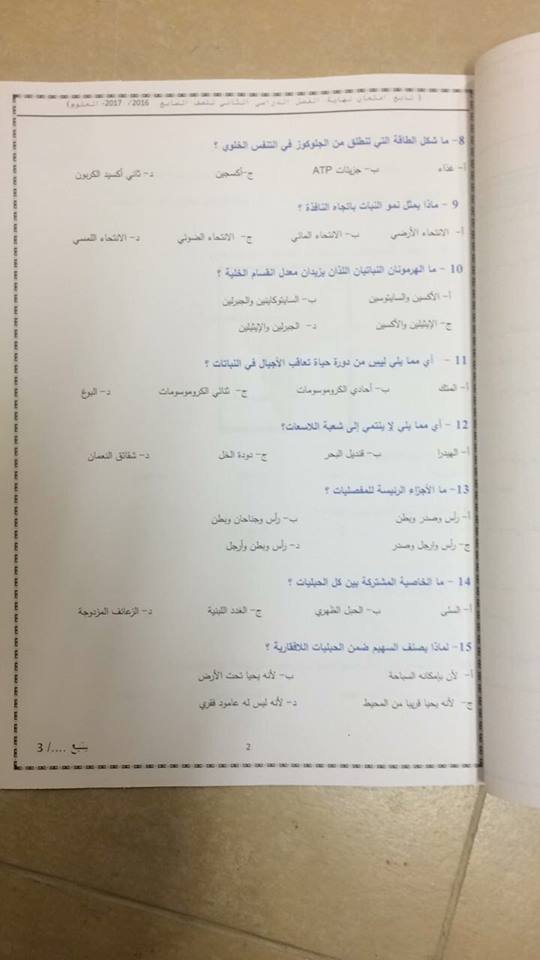 ( تابع امتحان نهاية الفصل الدراسي الثاني للصف السابع 2016/ 2017- العلوم)
8- ما شكل الطاقة التي تنطلق من الجلوكوز في التنفس الخلوي ؟
أ- غذاء ب- جزيئات ATP ج-أكسجين د- ثاني أكسيد الكربون
9 - ماذا يمثل نمو النبات باتجاه النافذة ؟
أ- الانتحاء الأرضي ب- الانتحاء المائي ج- الانتحاء الضوئي د- الانتحاء اللمسي
10 - ما الهرمونان النباتيان اللذان يزيدان معدل انقسام الخلية ؟
أ- الأكسين والسايتوسين ب- السايتوكاينين والجبرلين
ج- الإيثيلين والأكسين د- الجبرلين والإيثيلين
11 - أي مما يلي ليس من دورة حياة تعاقب الأجيال في النباتات ؟
أ- المتك ب- أحادي الكروموسومات ج- ثنائي الكروموسومات د- البوغ
12 - أي مما يلي لا ينتمي إلى شعبة اللاسعات؟
أ- الهيدرا ب- قنديل البحر ج- دودة الخل د- شقائق النعمان
13- ما الأجزاء الرئيسة للمفصليات ؟
أ- رأس وصدر وبطن ب- رأس وجناحان وبطن
ج- رأس وارجل وصدر د- رأس وبطن وأرجل
14 - ما الخاصية المشتركة بين كل الحبليات ؟
أ- السلى ب- الحبل الظهري ج- الغدد اللبنية د- الزعانف المزدوجة
15- لماذا يصنف السهيم ضمن الحبليات اللافقارية ؟
أ- لأن بإمكانه السباحة ب- لأنه يحيا تحت الأرض
ج- لأنه يحيا قريبا من المحيط د- لأنه ليس له عامود فقري
2
يتبع ..../ 3